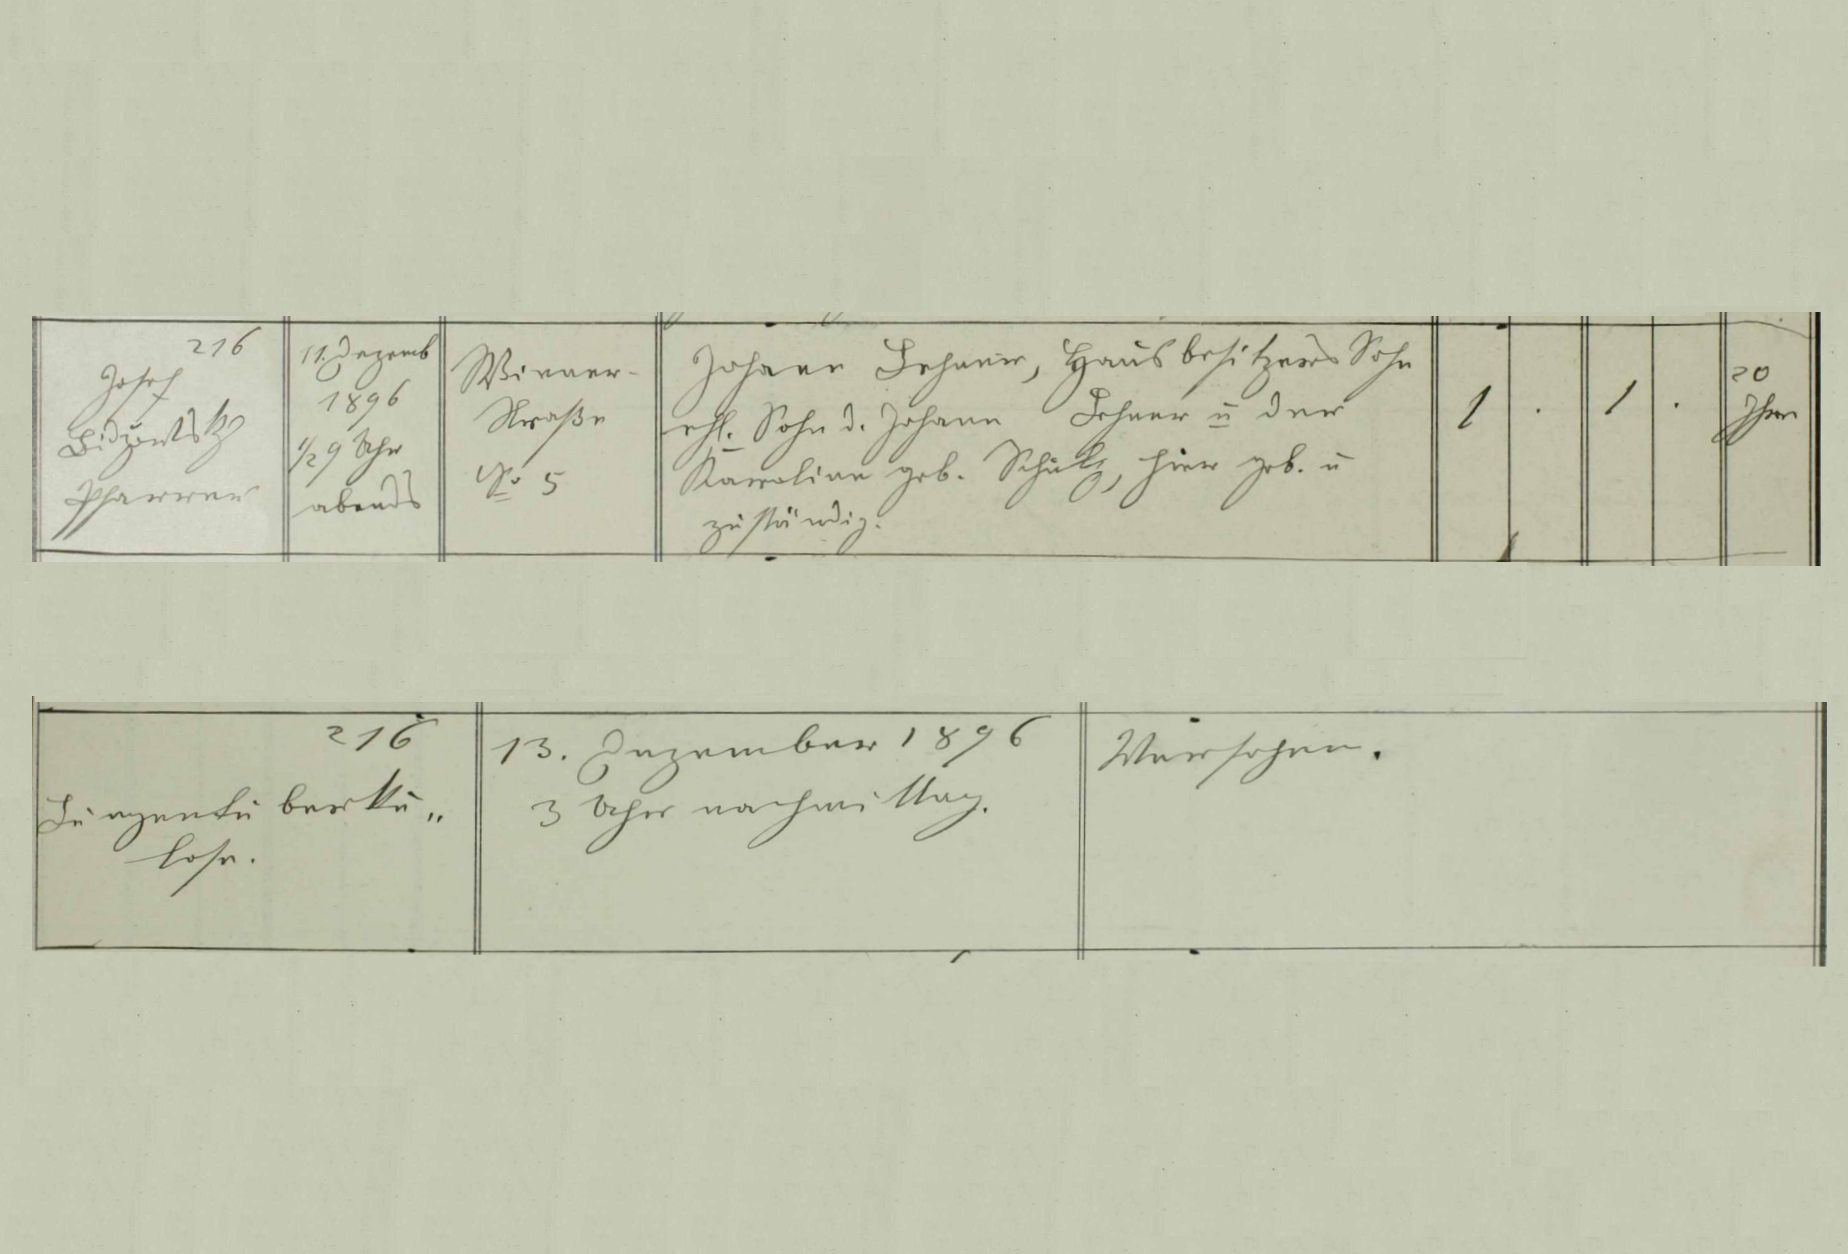 216
Josef
Pfarrer
11. Dezemb
1896
1/2 9 Uhr
abends
Wiener-
Straße
No 5
Johann Lehner, Hausbesitzers Sohn
ehl. Sohn d. Johann Lehner u der
Karoline geb. Schulz, hier geb. u
zuständig.
1 . 1 .
20
Jhre
216
Lungentuberku„
lose.
13. Dezember 1896
3 Uhr nachmittag.
Versehen.